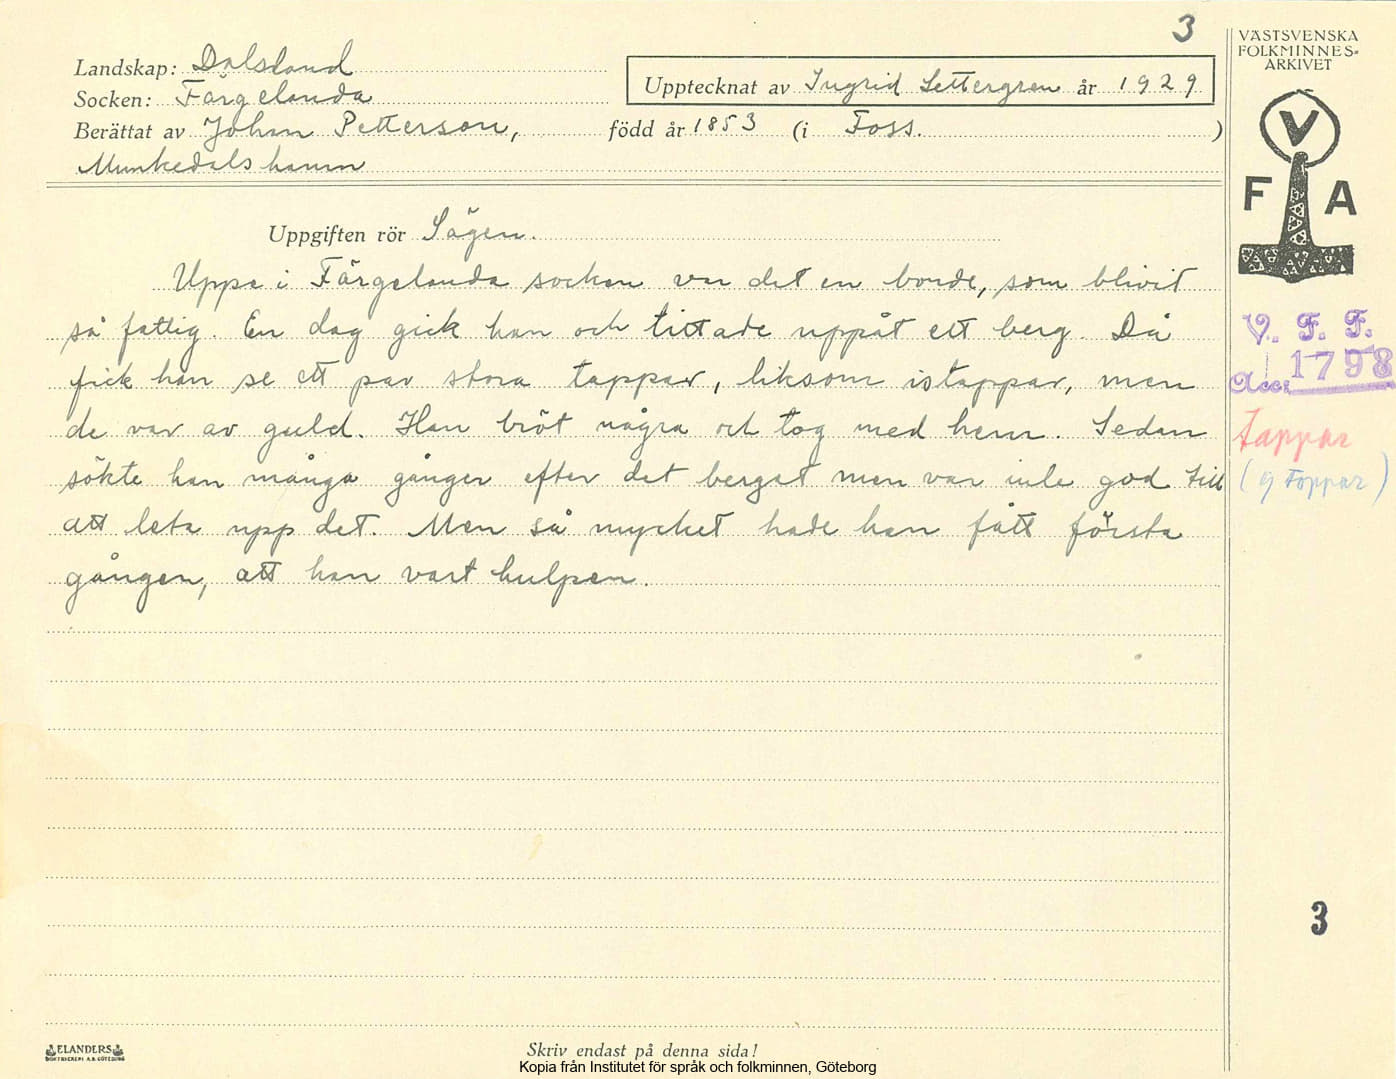 3
Landskap: Dalsland
Socken: Färgelanda
Upptecknat av Ingrid Settergren år 1929
Berättat av Johan Petterson, född år 1853 (i Foss. )
Munkedals hamn
Uppgiften rör Sägen.
Uppe i Färgelanda socken var det en bonde, som blivit
så fattig. En dag gick han och tittade uppåt ett berg. Då
fick han se ett par stora tappar, liksom istappar, men
de var av guld. Han bröt några och tog med hem. Sedan
sökte han många gånger efter det berget men var inte god till
att leta upp det. Men så mycket hade han fått första
gången, att han vart hulpen.
VÄSTSVENSKA
FOLKMINNES-
ARKIVET
V
F A
V. F. F.
1798
Acc.
Tappar
(ej Toppar)
3
ELANDERS
BOKTRYCKERI A.B. GÖTEBORG
Skriv endast på denna sida!
Kopia från Institutet för språk och folkminnen, Göteborg